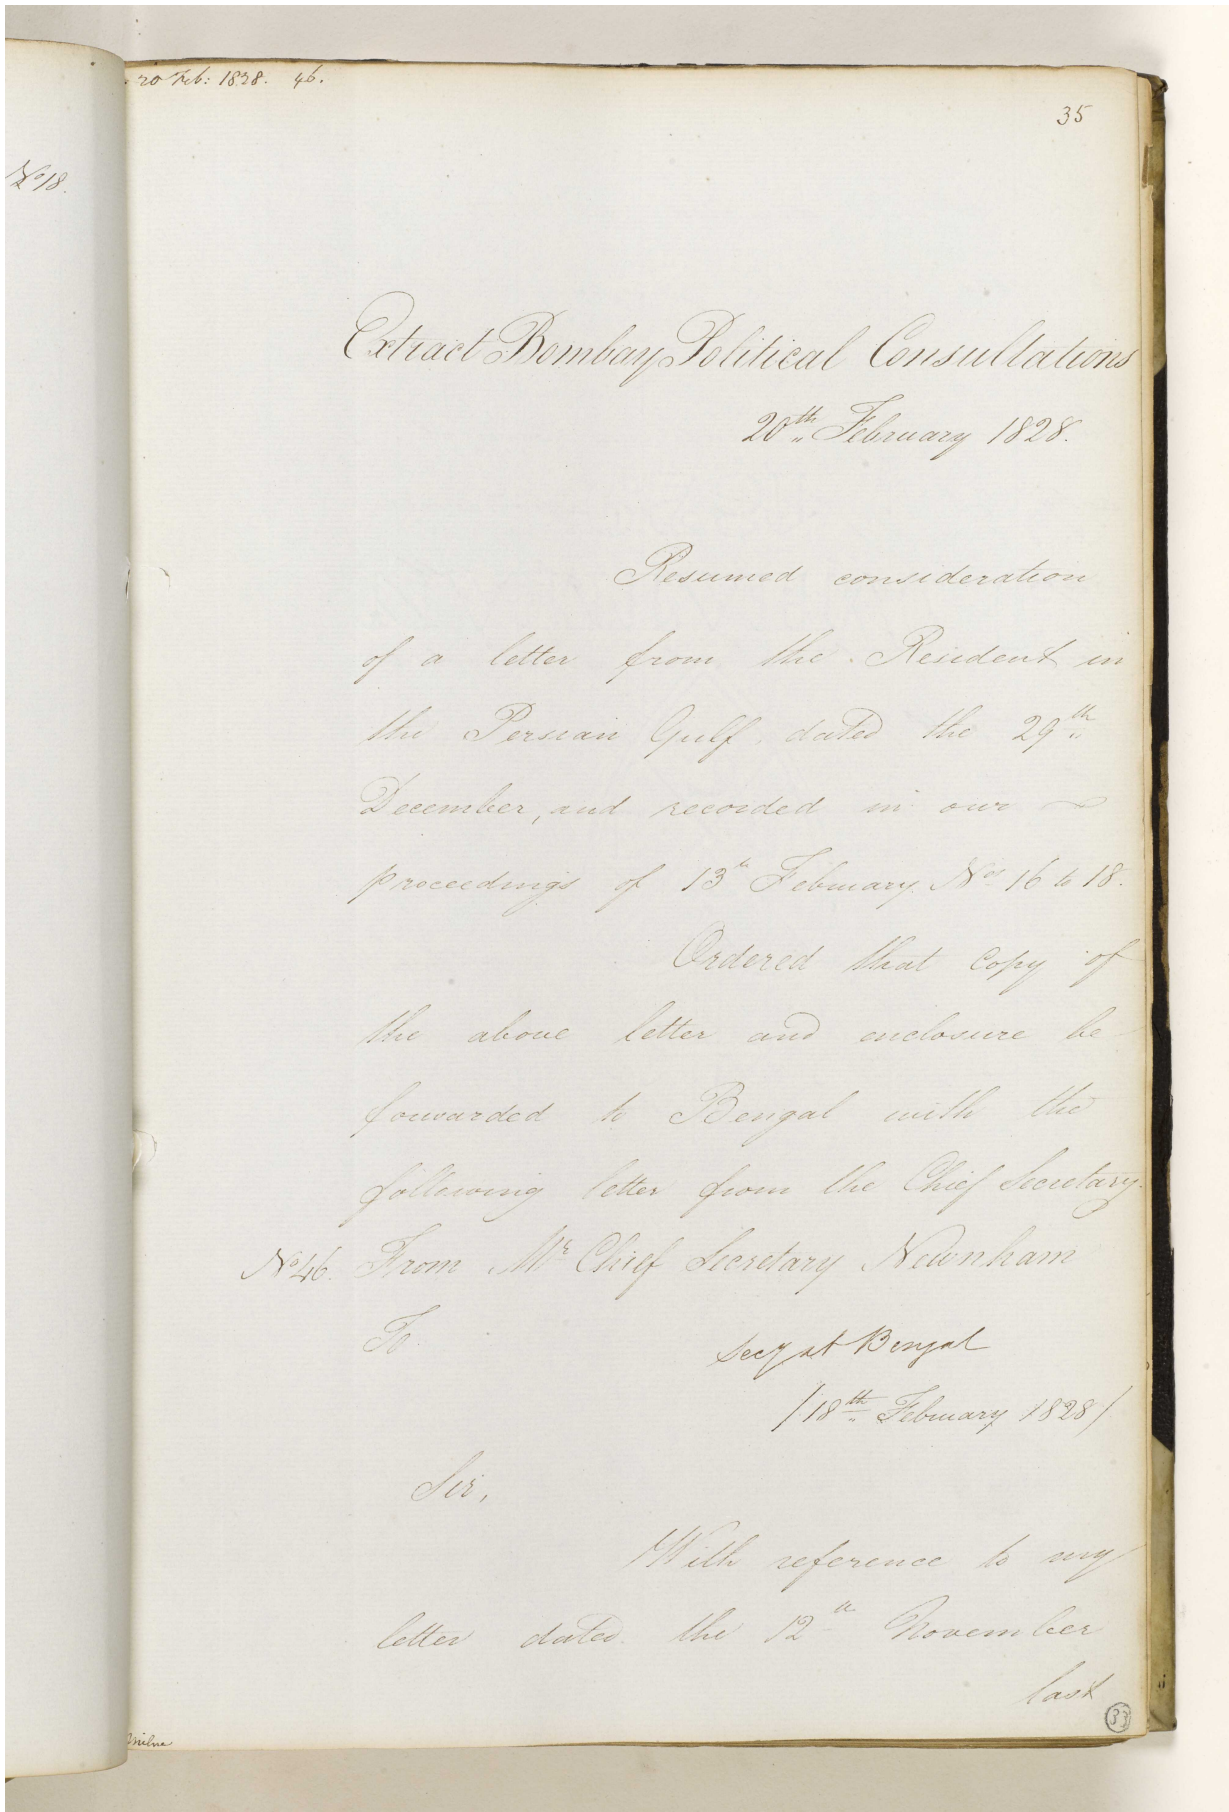 20 Feb: 1828. 46.
35
No 18.
Extract Bombay Political Consultations
20th February 1828.
Resumed consideration
of a letter from the Resident in
the Persian Gulf dated the 29th
December, and recorded in our
proceedings of 13th February Nos 16 to 18.
Ordered that Copy of
the above letter and enclosure be
forwarded to Bengal with the
following letter from the Chief Secretary.
No 46. From Mr Chief Secretary Newnham
To
Secy at Bengal
/18th February 1828/
Sir,
With reference to my
letter dated the 12th November
last
33